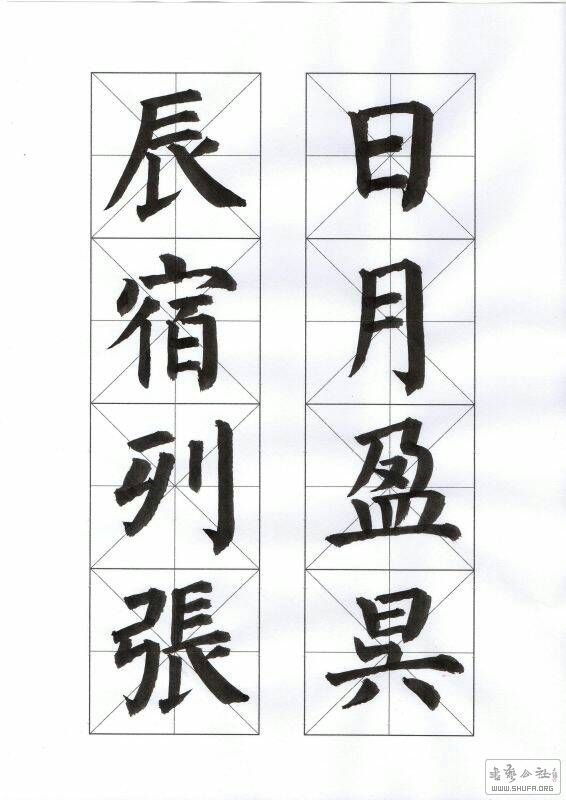 日月盈昃
辰宿列張
書藝公社
WWW.SHUFA.ORG